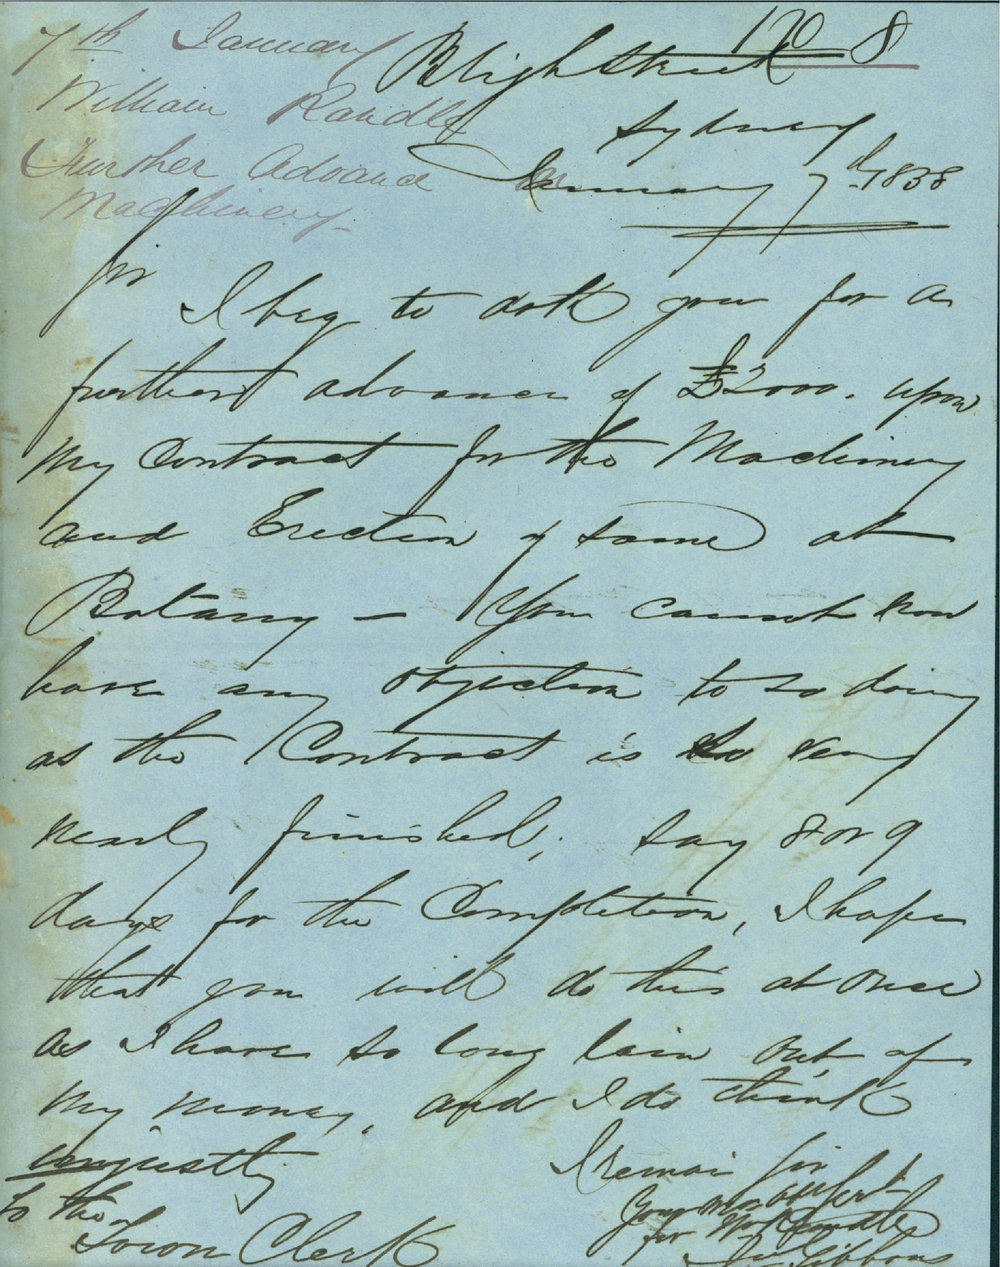 No 8
7th January
William Randle
Further Advance on
Machinery
Bligh Street
Sydney
January 7th 1858
Sir
I beg to ask you for a
further advance of £2000. upon
my Contract for the Machinery
and Erection of same at
Botany – You cannot now
have any objection to so doing
as the Contract is so very
nearly finished, say 8 or 9
days for the Completion, I hope
that you will do this at once
as I have so long lain out of
my money, and I do think
unjustly
I remain Sir
Your
for Wm Randle
Gibbons
To the
Town Clerk